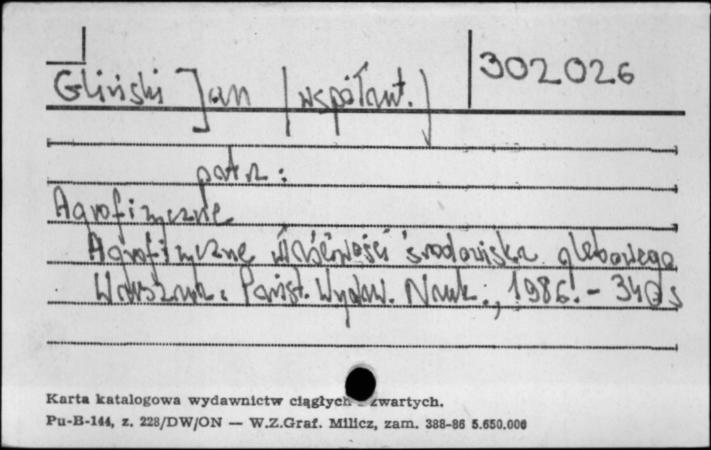 302026
Gliński Jan (współaut.)
patrz:
Agrofizyczne
Agrofizyczne właściwości środowiska glebowego
Warszawa: Państ. Wydaw. Nauk., 1986. - 340 s
Karta katalogowa wydawnictw ciągłych zwartych.
Pu-B-144, z. 228/DW/ON — W.Z.Graf. Milicz, zam. 388-86 5.650.000